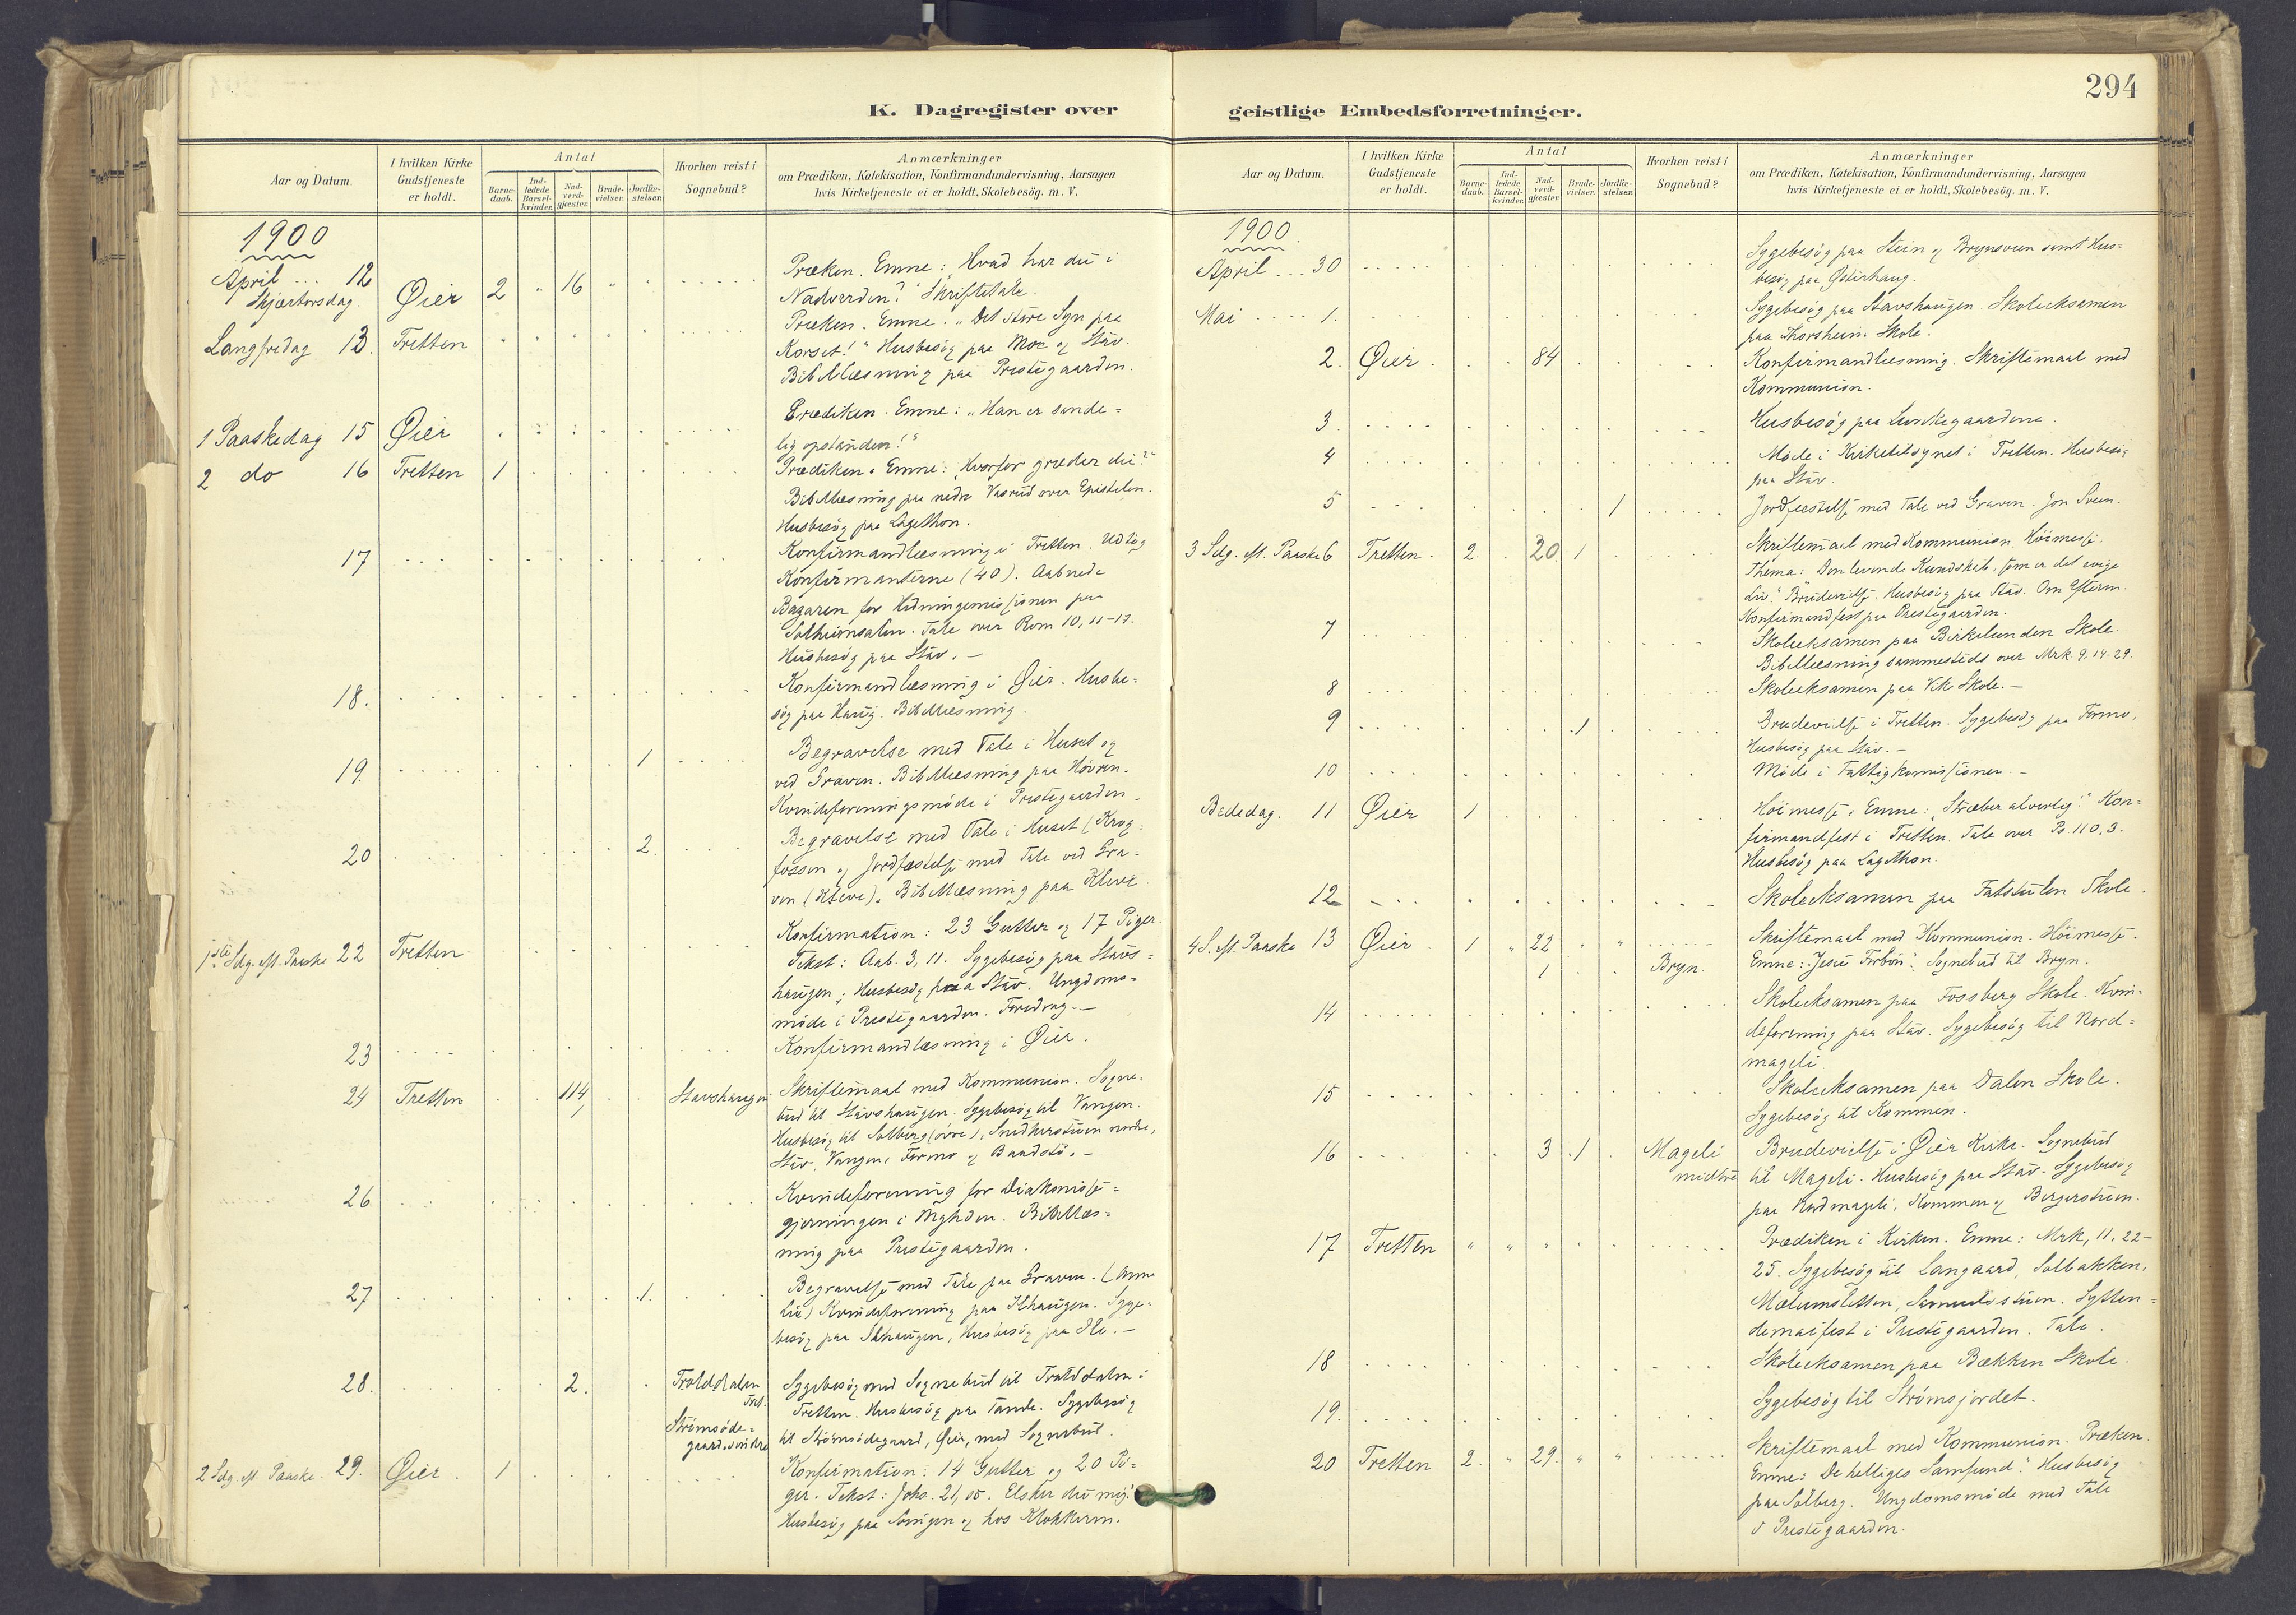 294
K. Dagregister over
Aar og Datum.
I hvilken Kirke
Gudstjeneste
er holdt.
Antal
Barne-
daab.
Ind-
ledede
Barsel-
kvinder.
Nad-
verd-
gjæster.
Brude-
vielser.
Jordfæ-
stelser.
Hvorhen reist i
Sognebud?
Anmærkninger
om Prædiken, Katekisation, Konfirmandundervisning, Aarsagen
hvis Kirketjeneste ei er holdt, Skolebesög. m. V.
1900
April ... 12 Øier 2 " 16 " " Præken. Emne: "Hvad har du i
Skjærtorsdag. Nadverden?" Skriftetale.
Langfredag 13. Tretten Præken. Emne. "Det store Syn paa
Korset!" Husbesøg paa Moe og Stav.
Bibellæsning paa Prestegaarden.
1 Paaskedag 15 Øier Prædiken. Emne: "Han er sande-
lig opstanden!"
2 do 16 Tretten 1 Prædiken. Emne: "Hvorfor græder du?"
Bibellæsning paa nedre Vasrud over Epistelen.
Husbesøg paa Lagethon.
17 Konfirmandlæsning i Tretten. Udtog
Konfirmanterne (40). Aabnede
Bazaren for Hedningemissionen paa
Solheimsalen. Tale over Rom 10, 11-17.
Husbesøg paa Stav. -
18. Konfirmandlæsning i Øier. Husbe-
søg paa Haug. Bibellæsning.
19. 1 Begravelse med Tale i Huset og
ved Graven. Bibellæsning paa Hovren.
Kvindeforeningsmøde i Prestegaarden.
20 2. Begravelse med Tale i Huset (Krog-
fossen og Jordfæstelse med Tale ved Gra-
ven (Kleve). Bibellæsning paa Kleve.
1ste Sdg. eft. Paaske 22 Tretten Konfirmation: 23 Gutter og 17 Piger.
Tekst: Aab. 3, 11. Sygebesøg paa Stavs-
haugen; Husbesøg paa Stav. Ungdoms-
møde i Prestegaarden. Foredrag. -
23 Konfirmandlæsning i Øier.
24 Tretten 114 Stavshaugen Skriftemaal med Kommunion. Sogne-
bud til Stavshaugen. Sygebesøg til Vangen.
Husbesøg til Solberg (øvre), Snedkerstuen nordre,
Stav, Vangen, Formo og Baadstø. -
26 Kvindeforening for Diakonisse-
gjerningen i Bygden. Bibellæs-
ning paa Prestegaarden.
27 1. Begravelse med Tale paa Graven. (Anne
Lie) Kvindeforening paa Ilhaugen. Syge-
besøg paa Ilhaugen, Husbesøg paa Ile. -
28. 2. Troldalen Tret. Sygebesøg med Sognebud til Troldalen i
Tretten. Husbesøg paa Tande. Sygebesøg
Strømsøde-
gaard, søndre til Strømsødegaard, Øier, med Sognebud.
2 Sdg. eft. Paaske. 29. Øier. 1 Konfirmation: 14 Gutter og 20 Pi-
ger. Tekst: Johs. 21, 15. Elsker du mig!
Husbesøg paa og hos Klokkeren.
geistlige Embedsforretninger.
Aar og Datum.
I hvilken Kirke
Gudstjeneste
er holdt.
Antal
Barne-
daab.
Ind-
ledede
Barsel-
kvinder.
Nad-
verd-
gjæster.
Brude-
vielser.
Jordfæ-
stelser.
Hvorhen reist i
Sognebud?
Anmærkninger
om Prædiken, Katekisation, Konfirmandundervisning, Aarsagen
hvis Kirketjeneste ei er holdt, Skolebesög. m. V.
1900.
April ... 30 Sygebesøg paa Stein og Brynsveen samt Hus-
besøg paa Østerhaug.
Mai .... 1. Sygebesøg paa Stavshaugen. Skoleeksamen
paa Thorsheim Skole.
2. Øier 84 Konfirmandlæsning. Skriftemaal med
Kommunion.
3. Husbesøg paa Lunkegaardene.
4 Møde i Kirketilsynet i Tretten. Husbesøg
paa Stav.
5 1 Jordfæstelse med Tale ved Graven. Jon Sveen.
3 Sdg. eft. Paaske 6 Tretten. 2. 20 1 Skriftemaal med Kommunion. Høimesse.
Thema: Den levende Kundskab, som er det evige
Liv." Brudevielse. Husbesøg paa Stav. Om Efterm.
Konfirmandfest paa Prestegaarden.
7 Skoleeksamen paa Birkelunden Skole.
Bibellæsning sammesteds over Mrk. 9. 14-29.
8 Skoleeksamen paa Vik Skole. -
9 1 Brudevielse i Tretten. Sygebesøg paa Formo,
Husbesøg paa Stav. -
10 Møde i Fattigkomissionen. -
Bededag. 11 Øier 1 Høimesse. Emne: "Stræber alvorlig!" Kon-
firmandfest i Tretten. Tale over Ps. 110, 3.
Husbesøg paa Lagethon.
12 Skoleeksamen paa Skole.
4 S. eft. Paaske 13 Øier. 1 " 22 " " Skriftemaal med Kommunion. Høimesse.
1 Bryn. Emne: "Jesu Forbøn". Sognebud til Bryn.
14 Skoleeksamen paa Fossberg Skole. Kvin-
deforening paa Stav. Sygebesøg til Nord-
mageli.
15 Skoleeksamen paa Dalen Skole.
Sygebesøg til Kommen.
16 3 1 Mageli
midtre Brudevielse i Øier Kirke. Sognebud
til Mageli. Husbesøg paa Stav. Sygebesøg
paa Nordmageli, Kommen og Bergerstuen.
17 Tretten " " " Prædiken i Kirken. Emne: Mrk, 11, 22-
25. Sygebesøg til Langaard, Solbakken,
Mælumsletten, Samuelsstuen. Sytten-
demaifest i Prestegaarden. Tale.
18 Skoleeksamen paa Bækken Skole.
19. Sygebesøg til Strømsjordet.
20 Tretten 2. " 29. " " Skriftemaal med Kommunion. Præken.
Emne: De helliges Samfund". Husbesøg
paa Solberg. Ungdomsmøde med Tale
i Prestegaarden.